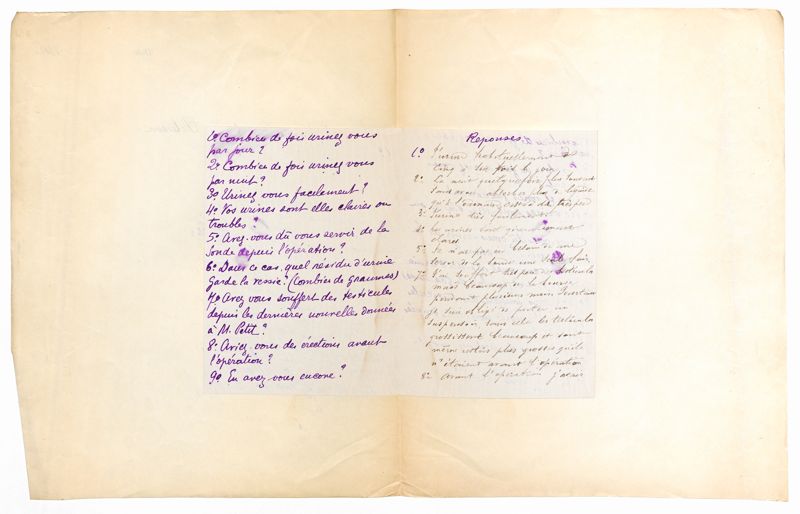 1º Combien de fois urinez vous
par jour ?
2º Combien de fois urinez vous
par nuit ?
3º Urinez vous facilement ?
4º Vos urines sont elles claires ou
troubles ?
5º Avez-vous dû vous servir de la
Sonde depuis l'opération ?
6º Dans ce cas, quel résidu d'urine
garde la vessie ? (Combien de grammes)
7º Avez vous souffert des testicules
depuis les dernières nouvelles données
à M. Petit ?
8º Aviez-vous des érections avant
l'opération ?
9º En avez-vous encore ?
Réponses
1º J'urine habituellement
cinq à six fois le jour
2º La nuit quelquefois
3º J'urine très facilement
4º Les urines sont
claires
5º Je n'ai pas eu besoin de me
servir de la sonde une seule fois
7º
mais beaucoup de la bourse
pendant plusieurs mois
je suis obligé de porter un
suspensoir les testicules
grossissent beaucoup et sont
même restés plus grosses qu'ils
n'étaient avant l'opération
8º Avant l'opération j'avais